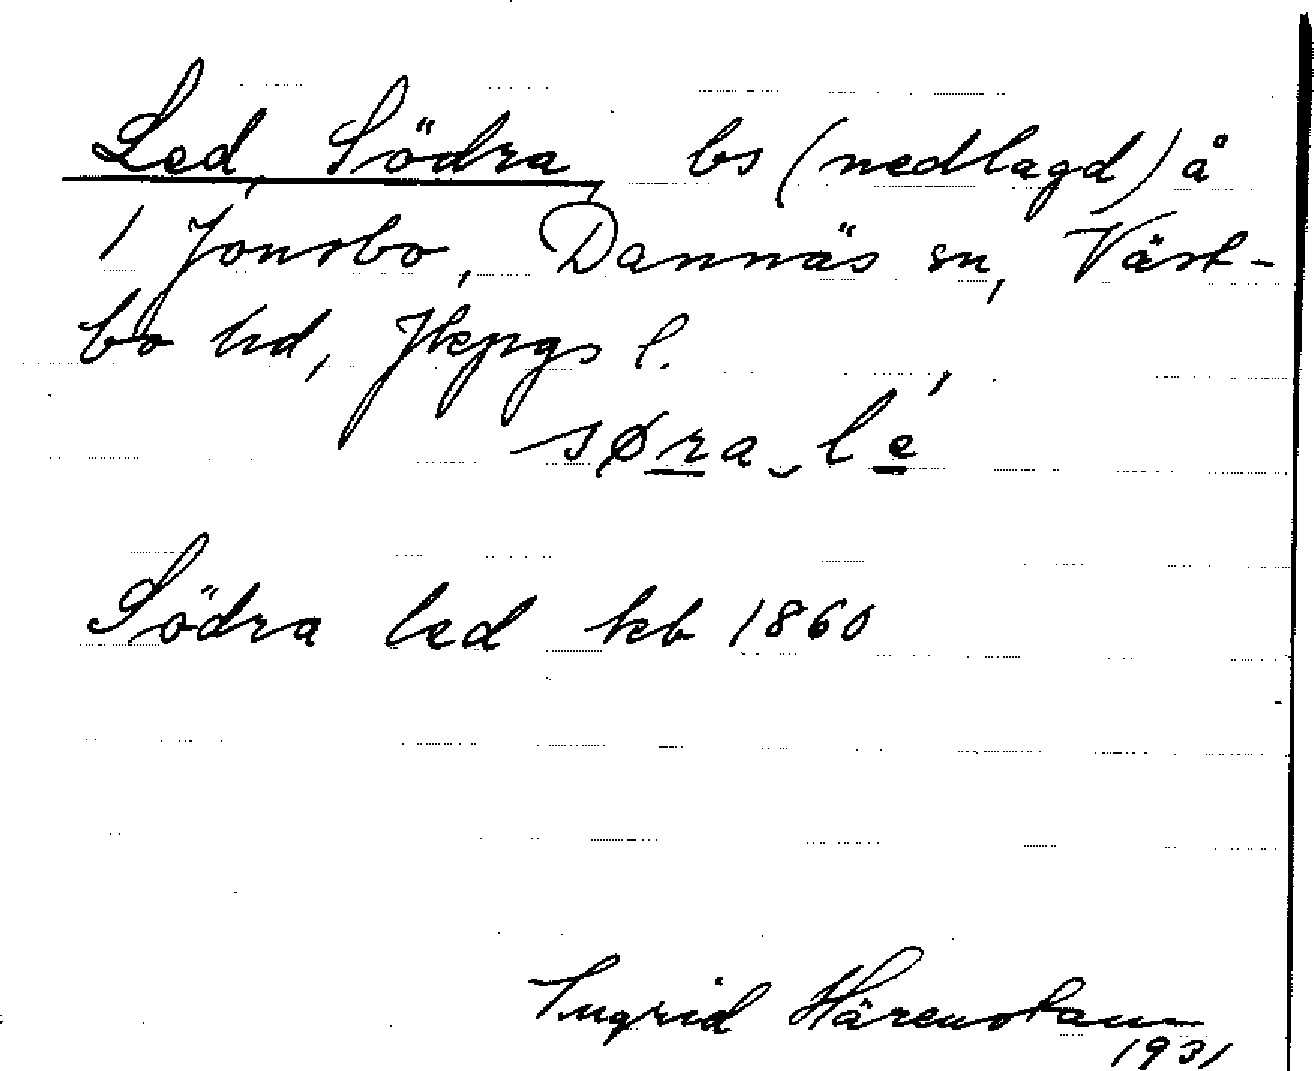 Led, Södra, bs (nedlagd) å
1 Jonsbo, Dannäs sn, Väst-
bo hd, Jkpgs l.
søra lé
Södra led kb 1860
Ingrid Härenstam
1931